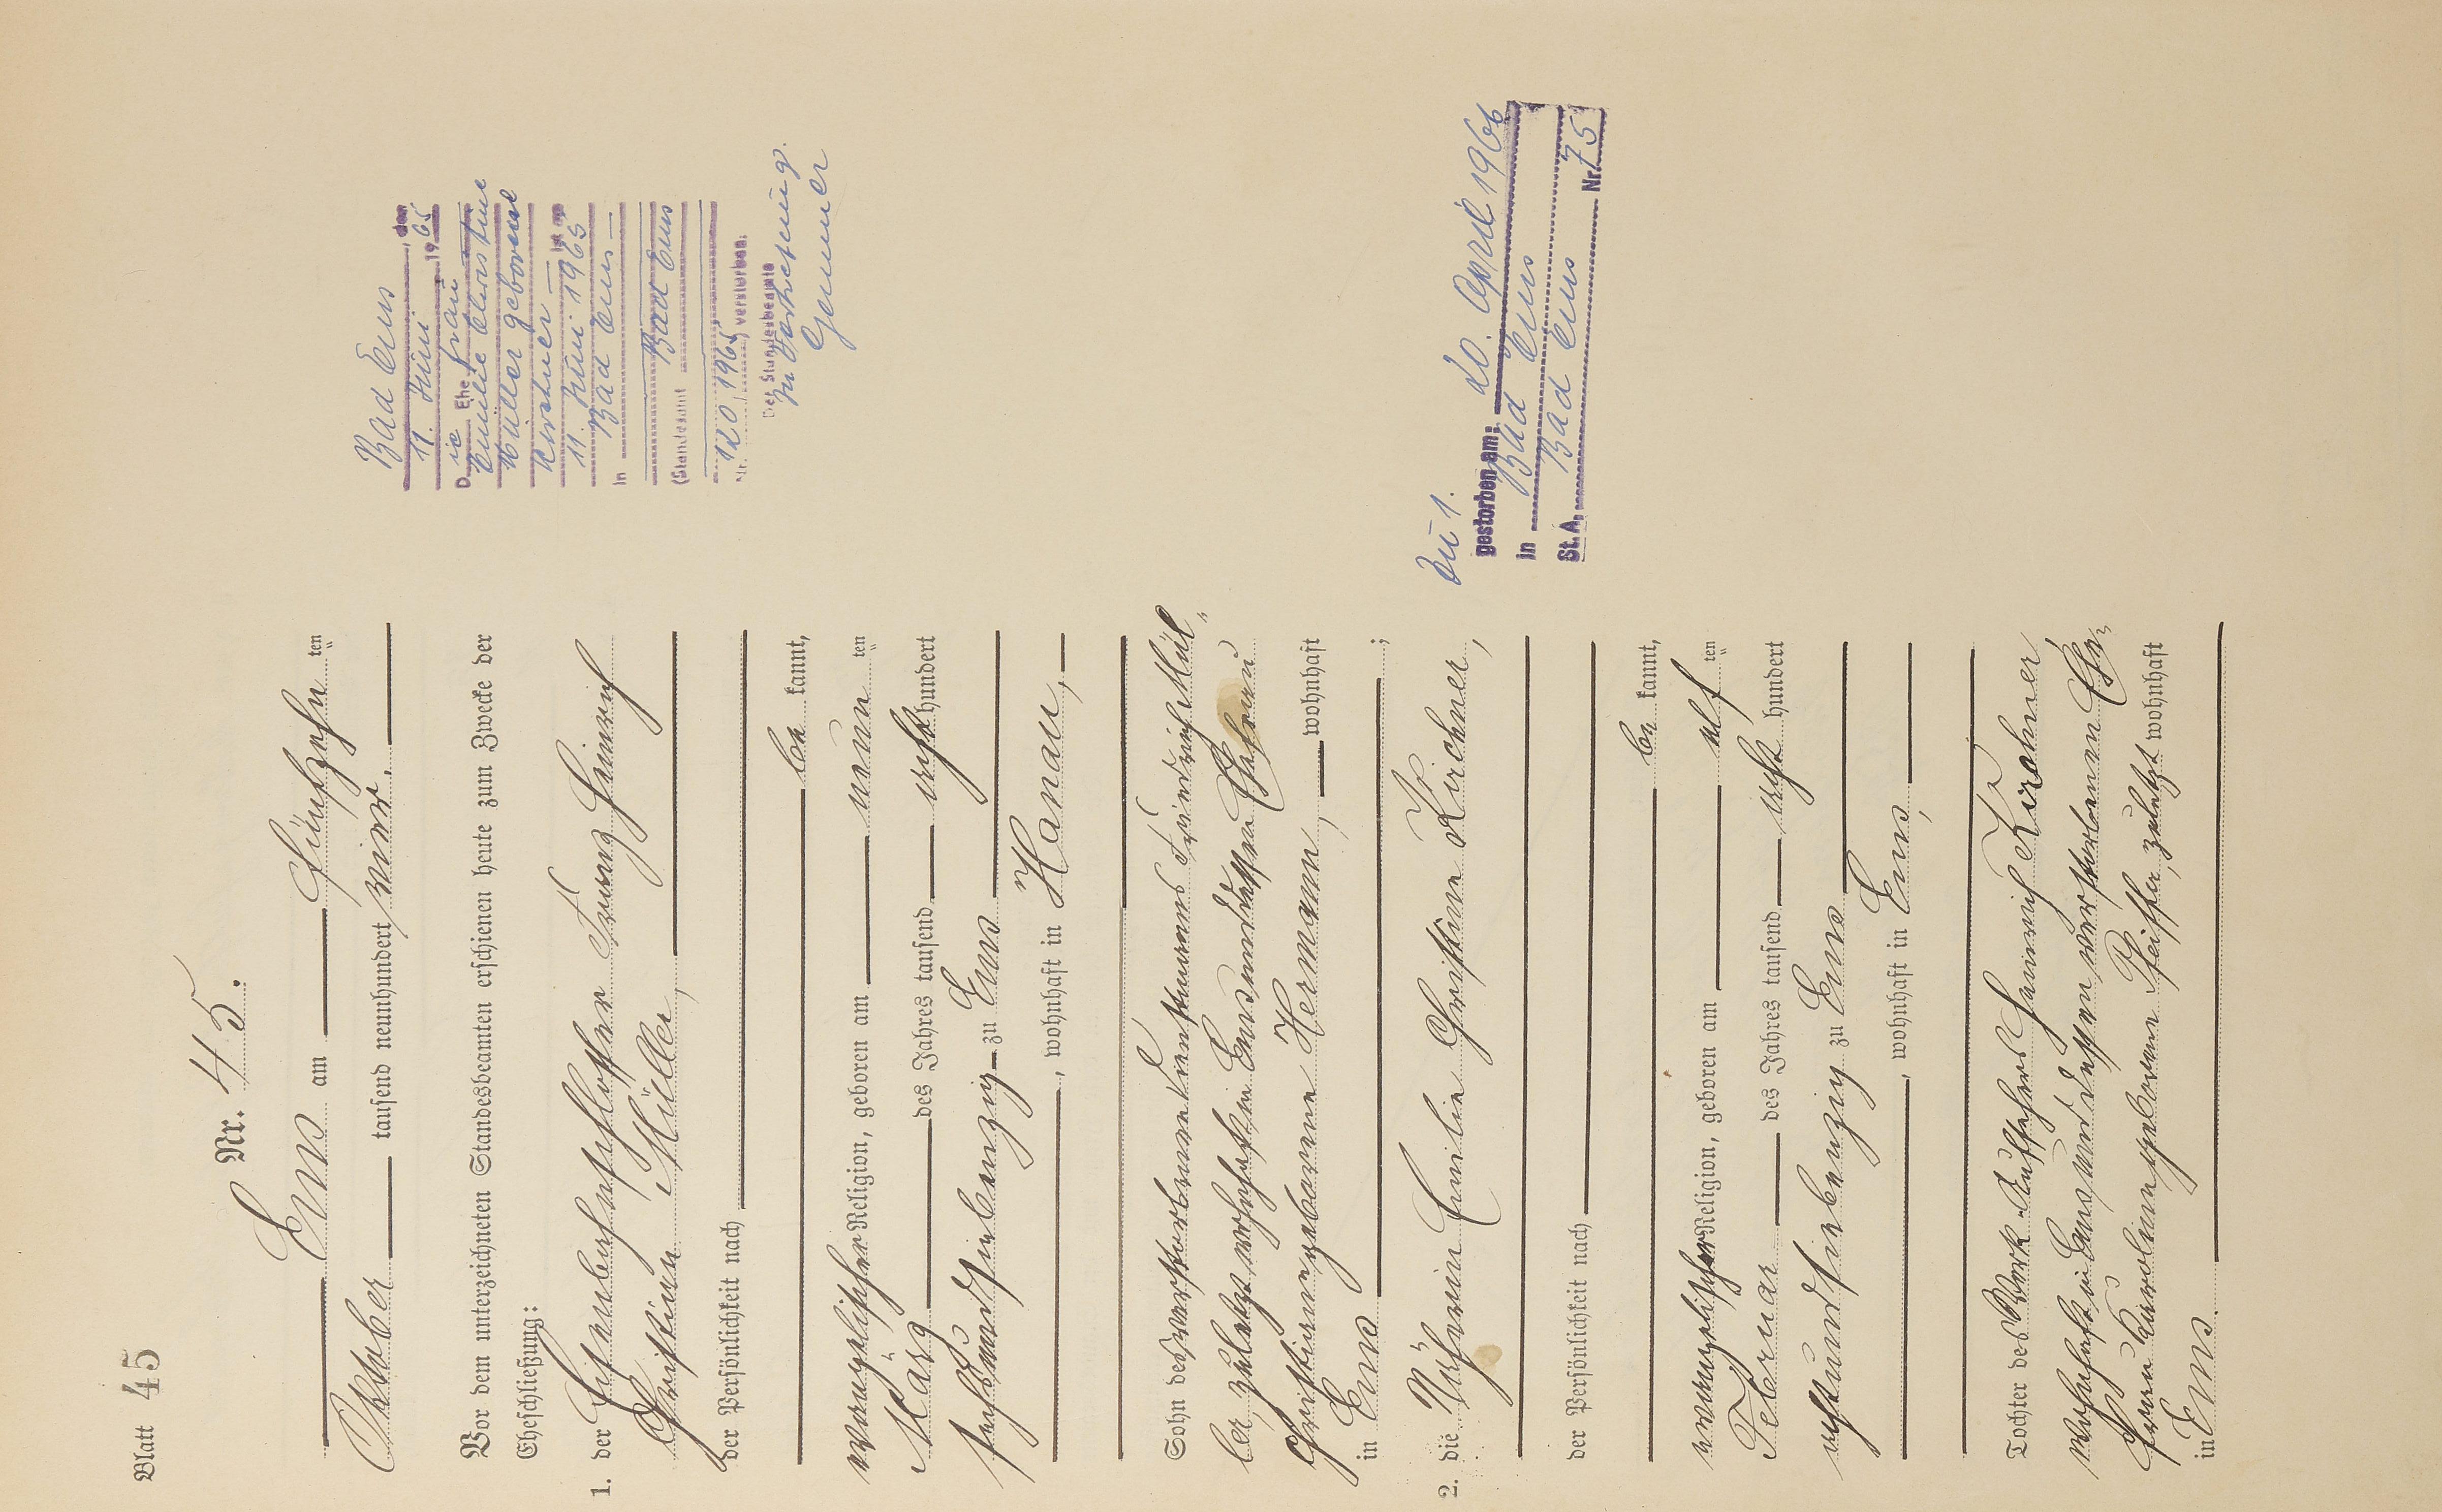 Blatt 45
Nr. 45.
Ems am fünfzehn ten
Oktober tausend neunhundert vier.
Vor dem unterzeichneten Standesbeamten erschienen heute zum Zwecke der
Eheschließung:
1. der Eisenbahnschlosser Franz Heinrich
Christian Müller,
der Persönlichkeit nach
be kannt,
evangelischer Religion, geboren am neun ten
März des Jahres tausend acht hundert
sechsundsiebenzig zu Ems
, wohnhaft in Hanau,
Sohn des verstorbenen Friedrich Mül-
ler, zuletzt wohnhaft in Ems und dessen Ehefrau
Christiane geborene Hermann, wohnhaft
in Ems ;
2. die Näherin Emilie Christine Kirchner,
der Persönlichkeit nach
be kannt,
evangelischer Religion, geboren am elf ten
Februar des Jahres tausend acht hundert
achtundsiebenzig zu Ems
, wohnhaft in Ems,
Tochter des Werk-Aufsehers Heinrich Kirchner,
wohnhaft in Ems und dessen verstorbenen Ehe-
frau Karoline geborene Pfeiffer, zuletzt wohnhaft
in Ems.
Bad Ems, den
11. Juni 1965
Die Ehefrau
Emilie Christine
Müller geborene
Kirchner ist am
11. Juni 1965
in Bad Ems
(Standesamt Bad Ems
Nr. 120/1965) verstorben.
Der Standesbeamte
In Vertretung
Zu 1.
gestorben am: 20. April 1966
in Bad Ems
St.A. Bad Ems Nr. 75